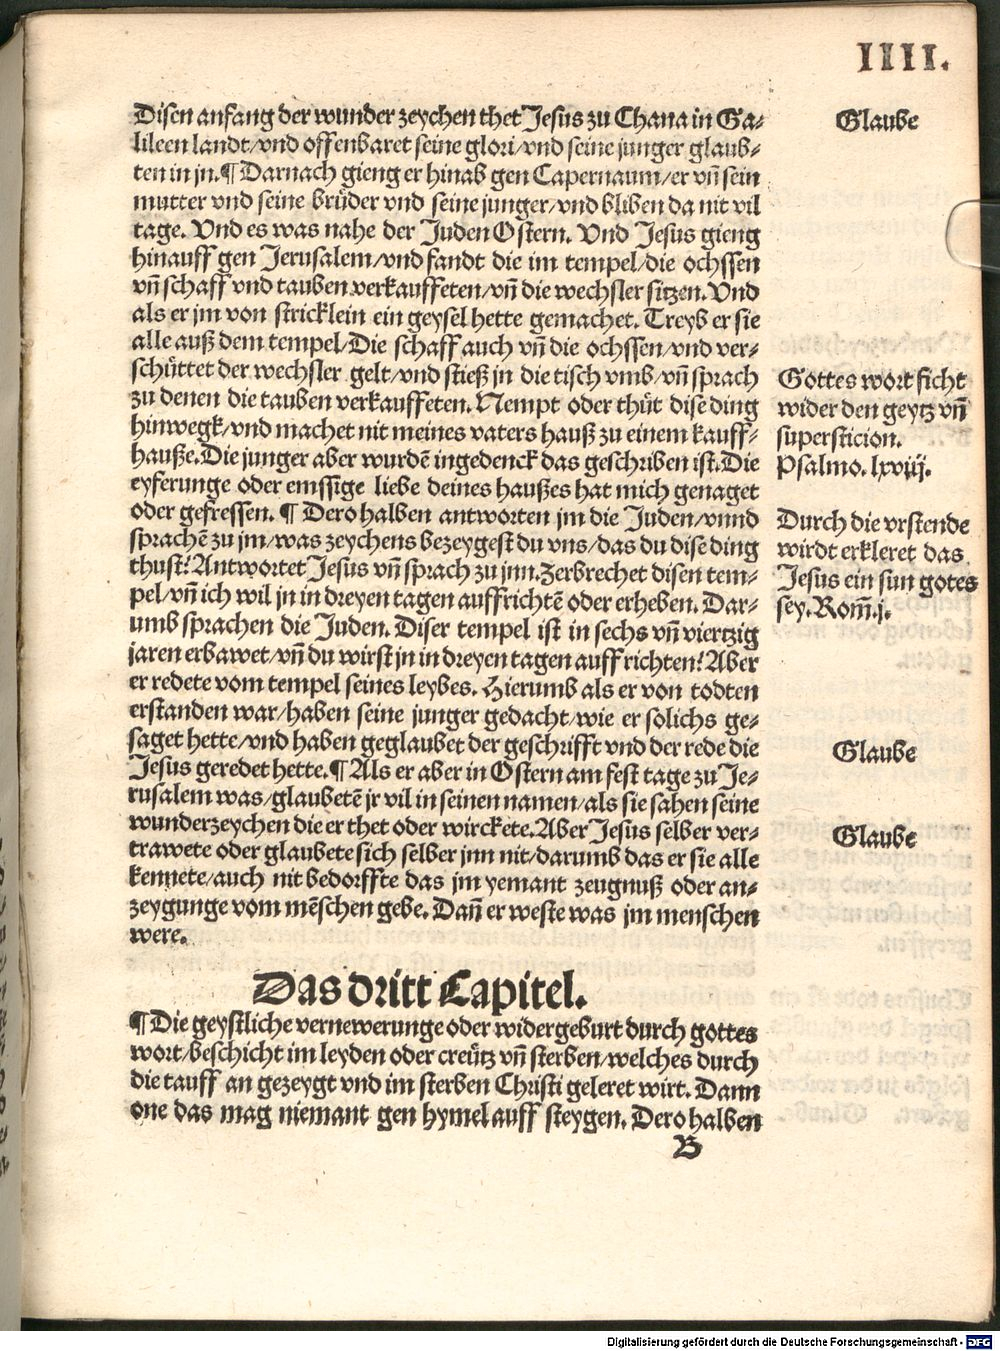 IIII.
Disen anfang der wunder zeychen thet Jesus zu Chana in Ga⸗
lileen landt/vnd offenbaret seine glori/vnd seine junger glaub⸗
ten in jn.¶ Darnach gieng er hinab gen Capernaum/er vñ sein
mutter vnd seine brüder vnd seine junger/vnd bliben da nit vil
tage. Vnd es was nahe der Juden Ostern. Vnd Jesus gieng
hinauff gen Jerusalem/vnd fandt die im tempel/die ochssen
vñ schaff vnd tauben verkauffeten/vñ die wechsler sitzen. Vnd
als er jm von stricklein ein geysel hette gemachet. Treyb er sie
alle auß dem tempel/Die schaff auch vñ die ochssen/vnd ver⸗
schüttet der wechsler gelt/vnd stieß jn die tisch vmb/vñ sprach
zu denen die tauben verkauffeten. Nempt oder thüt dise ding
hinwegk/vnd machet nit meines vaters hauß zu einem kauff⸗
hauße. Die junger aber wurdē ingedenck das geschriben ist. Die
eyferunge oder emssige liebe deines haußes hat mich genaget
oder gefressen. ¶ Derohalben antworten jm die Juden/vnnd
sprachē zu jm/was zeychens bezeygest du vns/das du dise ding
thust? Antwortet Jesus vñ sprach zu jnn. Zerbrechet disen tem⸗
pel/vñ ich wil jn in dreyen tagen auffrichtē oder erheben. Dar⸗
umb sprachen die Juden. Diser tempel ist in sechs vñ viertzig
jaren erbawet/vñ du wirst jn in dreyen tagen auff richten? Aber
er redete vom tempel seines leybes. Hierumb als er von todten
erstanden war/haben seine junger gedacht/wie er solichs ge⸗
saget hette/vnd haben geglaubet der geschrifft vnd der rede die
Jesus geredet hette.¶ Als er aber in Ostern am fest tage zu Je⸗
rusalem was/glaubetē jr vil in seinen namen/als sie sahen seine
wunderzeychen die er thet oder wirckete. Aber Jesus selber ver⸗
trawete oder glaubete sich selber jnn nit/darumb das er sie alle
kennete/auch nit bedorffte das jm yemant zeugnuß oder an⸗
zeygunge vom mēschen gebe. Dañ er weste was jm menschen
were.
Das dritt Capitel.
¶ Die geystliche vernewerunge oder widergeburt durch gottes
wort/beschicht im leyden oder creütz vñ sterben/welches durch
die tauff an gezeygt vnd im sterben Christi geleret wirt. Dann
one das mag niemant gen hymel auff steygen. Derohalben
B
Glaube
Gottes wort ficht
wider den geytz vñ
supersticion.
Psalmo. lxviij.
Durch die vrstende
wirdt erkleret das
Jesus ein sun gotes
sey. Rom̄.j.
Glaube
Glaube
Digitalisierung gefördert durch die Deutsche Forschungsgemeinschaft - DFG